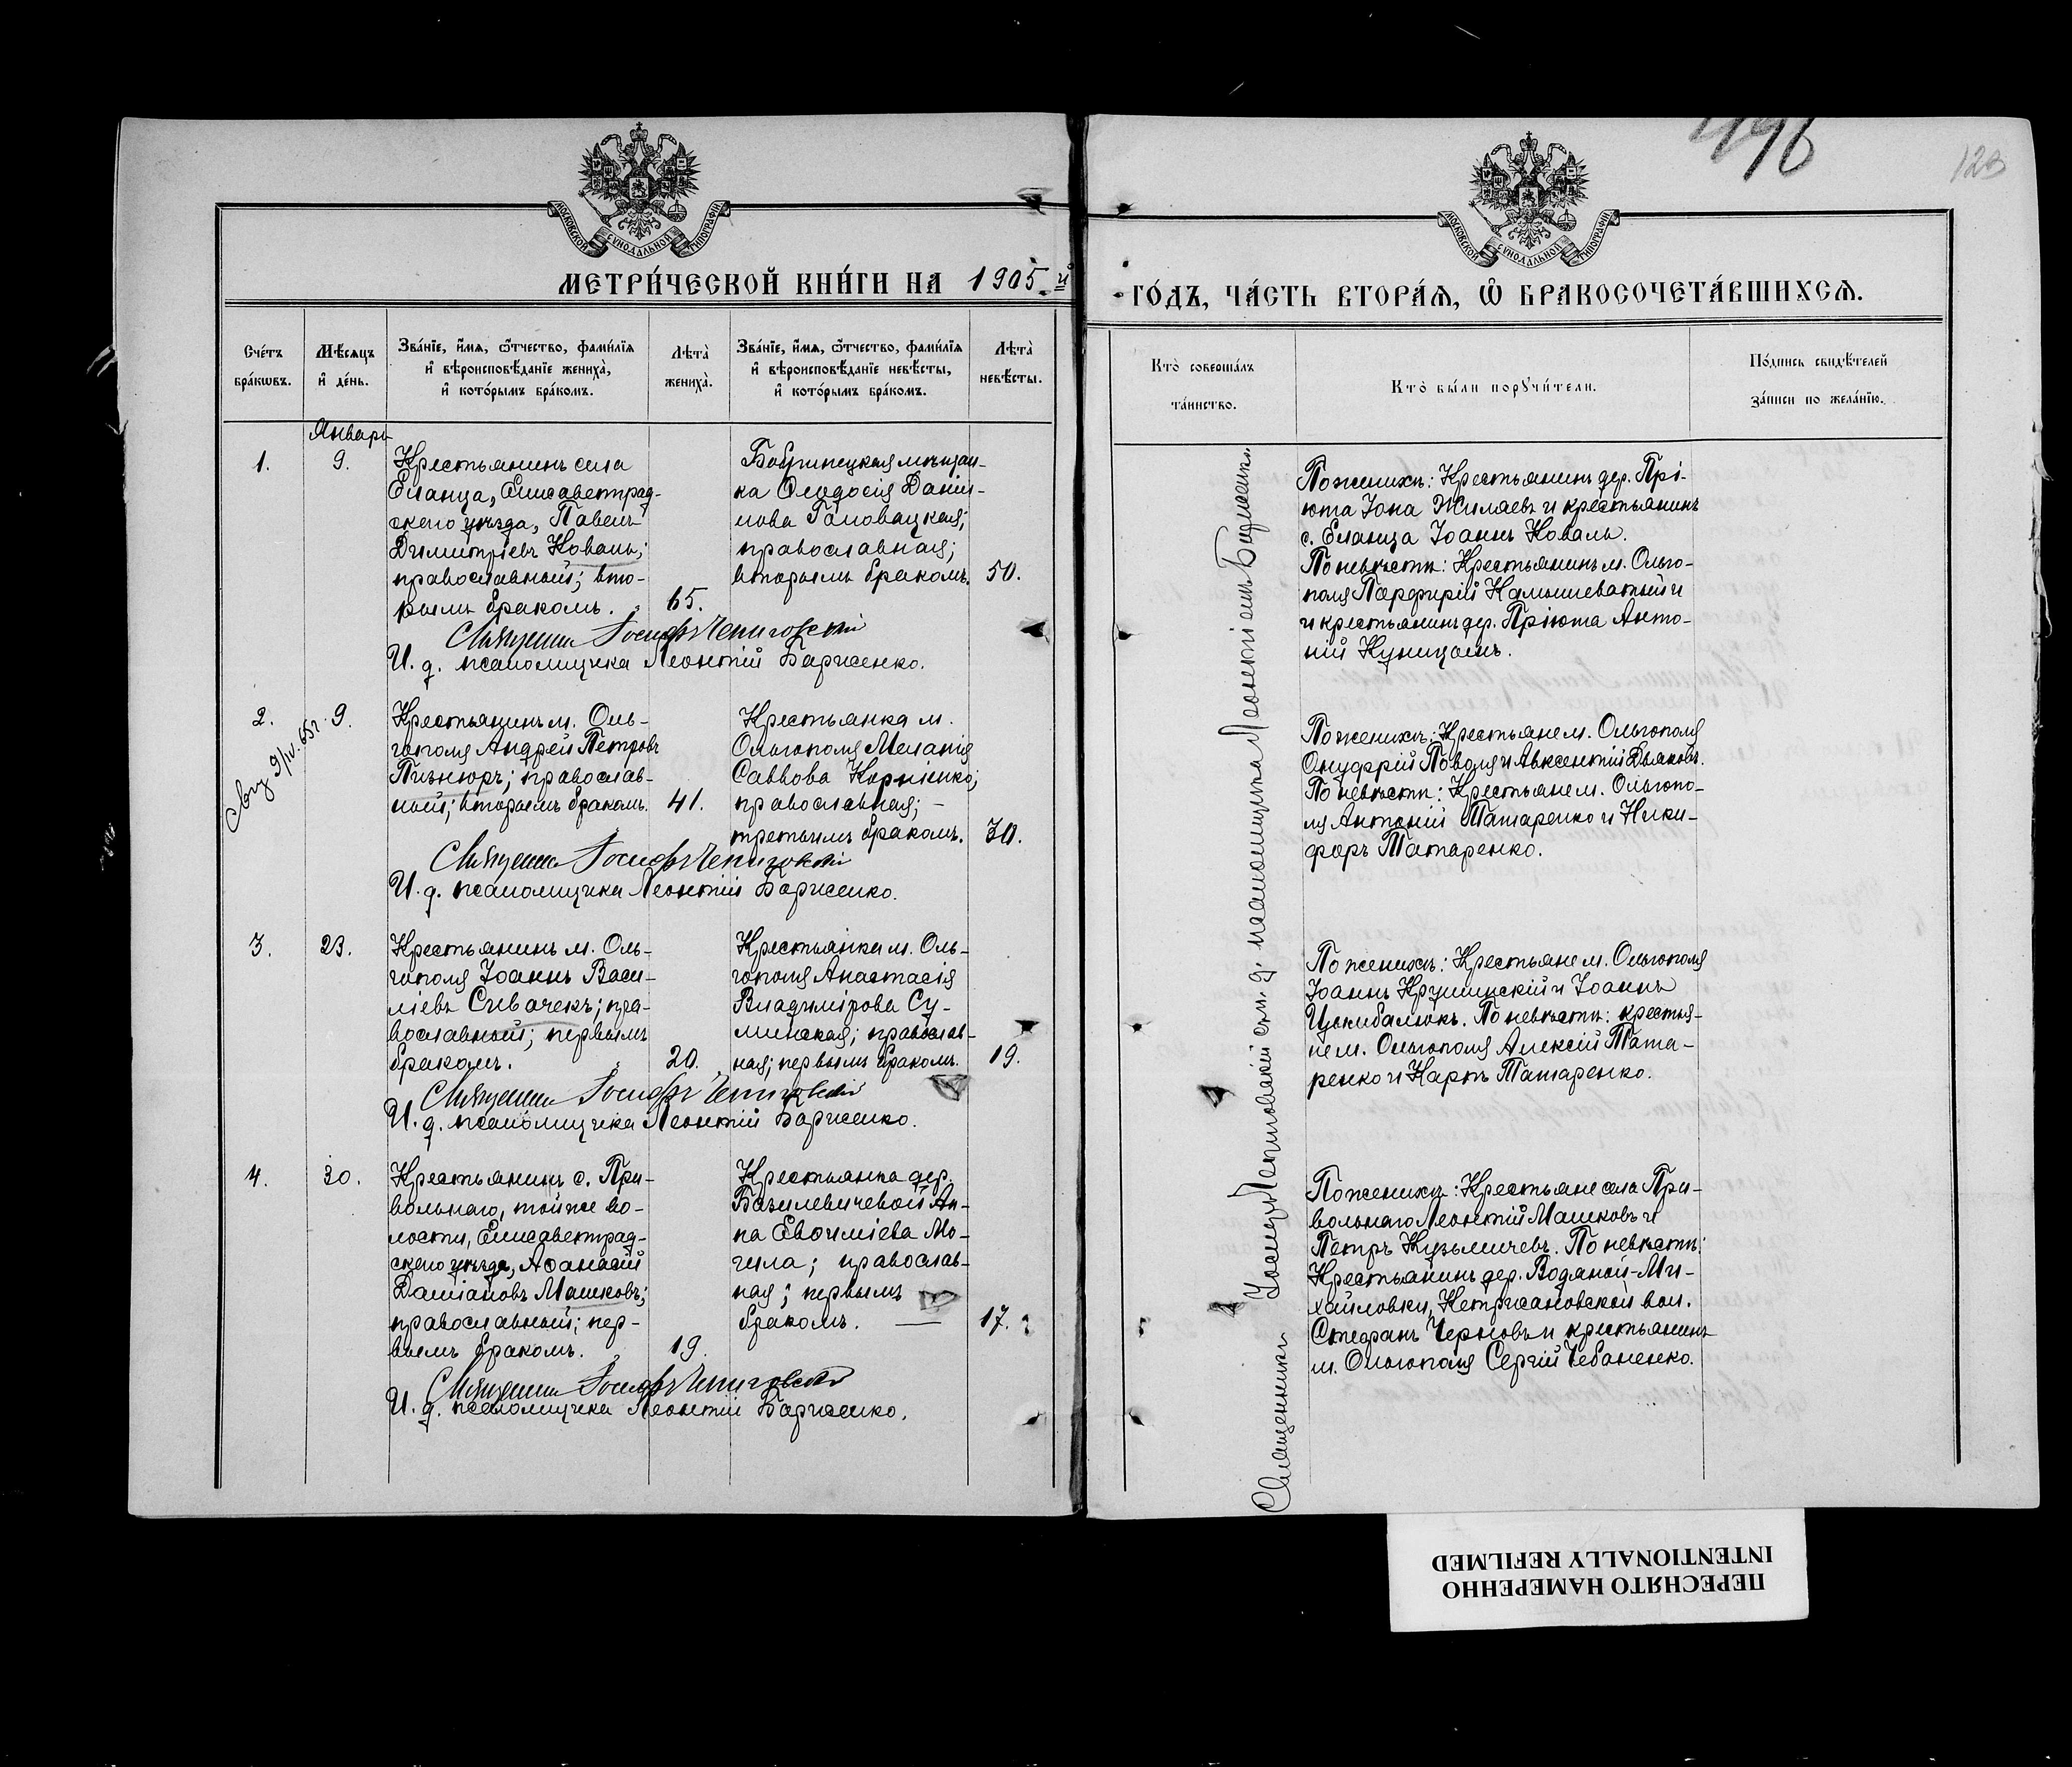 1196
123
МОСКОВСКОЙ СѴНОДАЛЬНОЙ ТИПОГРАФІИ
МОСКОВСКОЙ СѴНОДАЛЬНОЙ ТИПОГРАФІИ
МЕТРИ́ЧЕСКОЙ КНИ́ГИ НА 1905-й
ГО́ДЪ, ЧА́СТЬ ВТОРА́Ѧ, Ѽ БРАКОСОЧЕТА́ВШИХСѦ.
Сче́тъ бра́кѡвъ.
Мѣ́сѧцъ и҆ де́нь.
Зва́нїе, и҆́мѧ, ѻ҆́тчество, фами́лїѧ и҆ вѣроисповѣ́данїе жениха̀, и҆ кото́рымъ бра́комъ.
Лѣта̀ жениха̀.
Зва́нїе, и҆́мѧ, ѻ҆́тчество, фами́лїѧ и҆ вѣроисповѣ́данїе невѣ́сты, и҆ кото́рымъ бра́комъ.
Лѣта̀ невѣ́сты.
Кто̀ соверша́лъ та́инство.
Кто̀ бы́ли порꙋчи́тели.
По́дпись свидѣ́телей за́писи по жела́нїю.
Январь
1.
9.
Крестьянинъ села
Еланца, Елисаветград-
скаго уѣзда, Павелъ
Димитріевъ Коваль;
православный; вто-
рымъ бракомъ.
65.
Бобринецкая мѣщан-
ка Ѳеодосія Даніи-
лова Головацкая;
православная;
вторымъ бракомъ.
50.
Священникъ Іосифъ
И. д. псаломщика Леонтій
2.
9.
Крестьянинъ м. Оль-
гополя Андрей Петровъ
православ-
ный; вторымъ бракомъ.
41.
Крестьянка м.
Ольгополя Меланія
Саввова Корніенко;
православная; -
третьимъ бракомъ.
30.
Священникъ Іосифъ
И. д. псаломщика Леонтій
3.
23.
Крестьянинъ м. Оль-
гополя Іоаннъ Васи-
ліевъ Сивачекъ; пра-
вославный; первымъ
бракомъ.
20.
Крестьянка м. Оль-
гополя Анастасія
Владимірова Су-
минская; православ-
ная; первымъ бракомъ.
19.
Священникъ Іосифъ
И. д. псаломщика Леонтій
4.
30.
Крестьянинъ с. При-
вольнаго, той же во-
лости, Елисаветград-
скаго уѣзда, Аѳанасій
Даміановъ Машковъ;
православный; пер-
вымъ бракомъ.
19.
Крестьянка дер.
Базилевичевой Ан-
на Евѳиміева Мо-
гила; православ-
ная; первымъ
бракомъ.
17.
Священникъ Іосифъ
И. д. псаломщика Леонтій
Священникъ Іосифъ и. д. псаломщика Леонтіемъ
По женихѣ: Крестьянинъ дер. Прі-
юта Іона Жиляевъ и крестьянинъ
с. Еланца Іоаннъ Коваль.
По невѣстѣ: Крестьянинъ м. Ольго-
поля Порфирій Камышеватый и
и крестьянинъ дер. Пріюта Анто-
ній Куницынъ.
По женихѣ: Крестьяне м. Ольгополя
Онуфрій Поволя и Авксентій Дьяковъ.
По невѣстѣ: Крестьяне м. Ольгопо-
ля Антоній Татаренко и Ники-
форъ Татаренко.
По женихѣ: Крестьяне м. Ольгополя
Іоаннъ Крушинскій и Іоаннъ
Цымбалюкъ. По невѣстѣ: крестья-
не м. Ольгополя Алексій Тата-
ренко и Карпъ Татаренко.
По женихѣ: Крестьяне села При-
вольнаго Леонтій Машковъ и
Петръ Кузьмичевъ. По невѣстѣ:
Крестьянинъ дер. Водяной-Ми-
хайловки, Кетрисановской вол.
Стефанъ Черновъ и крестьянинъ
м. Ольгополя Сергій Чебаненко.
ПЕРЕСНЯТО НАМЕРЕННО
INTENTIONALLY REFILMED